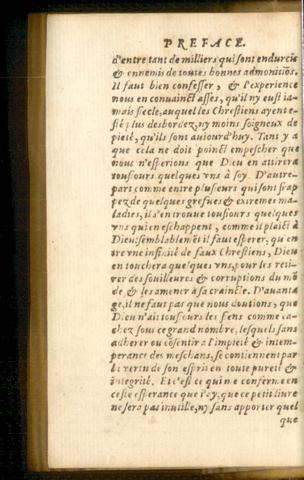 PREFACE.
d'entre tant de milliers qui sont endurcis
& ennemis de toutes bonnes admonitiõs.
Il faut bien confesser, & l'experience
nous en convainct asses, qu'il ny eust ia-
mais siecle, auquel les Chrestiens ayent e-
sté plus desbordez, ny moins soigneux de
pieté, qu'ils sont aujourd'huy. Tant y a
que cela ne doit poinct empescher que
nous n'esperions que Dieu en attirera
tousiours quelques vns à soy. D'autre-
part, comme entre plusieurs qui sont frap
pez de quelques griefues & extremes ma-
ladies, il s'en trouue tousiours quelques
vns qui en eschappent, comme il plaict à
Dieu: semblablemẽt il faut esperer, qu'en
tre vne infinité de faux Chrestiens, Dieu
en touchera quelques vns, pour les reti-
rer des souilleures & corruptions du mõ
de & les amener à sa crainte. D'auanta
ge, il ne faut pas que nous doutions, que
Dieu n'ait tousiours les siens comme ca-
chez sous ce grand nombre, lesquels sans
adherer ou cõsentir à l'impieté & intem-
perance des meschans, se contiennent par
la vertu de son esprit en toute pureté &
integrité. Et c'est ce qui me conferme en
ceste esperance que i'ay, que ce petit liure
ne sera pas inutile, ny sans apporter quel
que